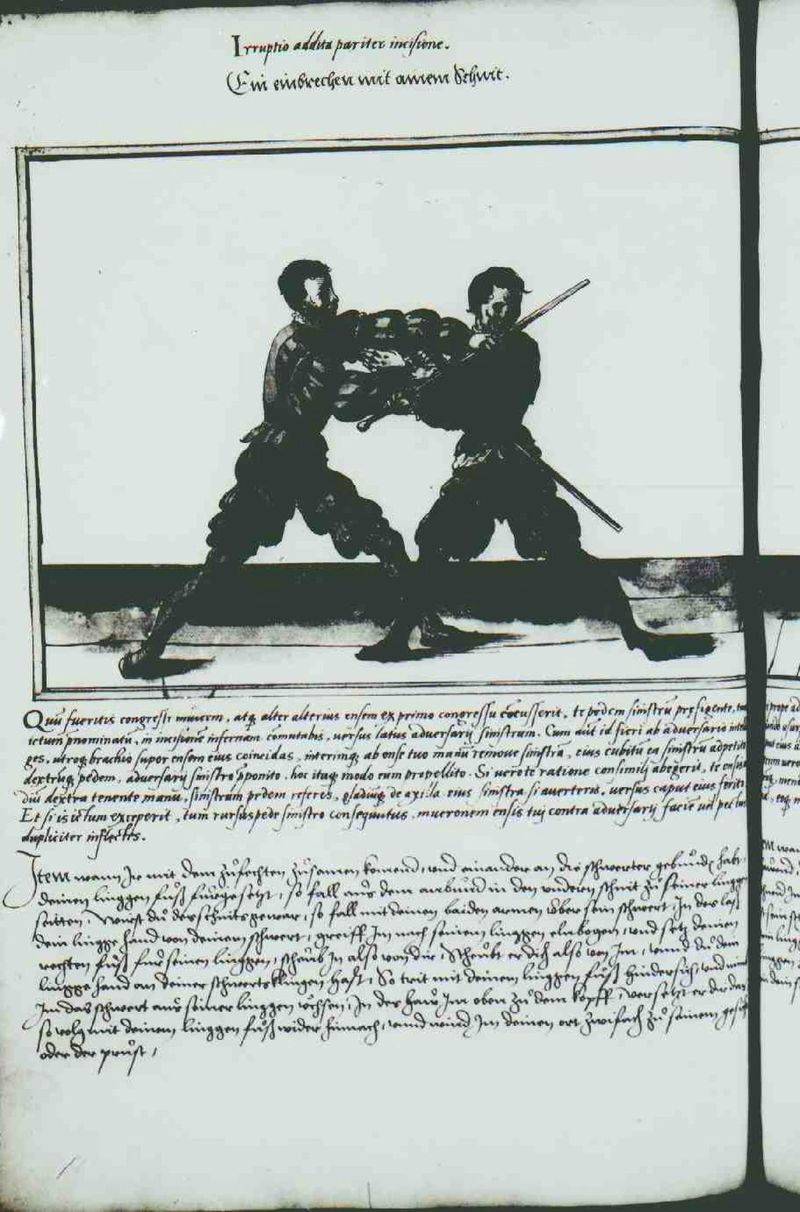 Irruptio addita pariter incisione.
Ein einbrechen mit ainem Schnit.
Quū fueritis congressi invicem, atq alter alterius ensem ex primo congressu concusserit, te pedem sinistrū præfigente,
ictum pnominatū, in incisionē infernam comutabis, versus latus adversarij sinistrum. Cum aūt id fieri ab adversario
ges, utroq brachio super ensem eius coincidas, interimq ab ense tuo manū remove sinistrā, eius cubitū ea sinistrū
dextruq pedem, adversarij sinistro pponito. hoc itaq modo eum propellito. Si vero te ratione consimili abegerit, te
dextra tenente manu, sinistrum pedem referes, de axilla eius sinistra si averteris, versus caput eius
Et si is ictum exceperit, tum rursus pede sinistro consequutus, mucronem ensis tui contra adversarij faciē vel
dupliciter inflectes.
Item wann Ir mit dem zufechten zusamen komend, und einander an die schwerter
deinen linggen fuß fürgesetzt, so fall aus dem anbund in den undern schnit zu seiner
seitten, Würst du des schnits gewar, so fall mit deinen baiden armen über sein schwert, In des laß
dein lingge hand von deinem schwert, greiff Im nach seinem linggen elnbogen, und setz deinen
rechten fuß für seinen linggen, scheub In also von dir, Scheubt er dich also von Im, unnd du dein
lingge hand an deiner schwertsklingen hast, So trit mit deinem linggen fuß hindersich, und
Im das schwert aus seiner linggen üchsen, In des haw Im oben zu dem kopff, versetzt er dir
so volg mit deinem linggen fuß wider hinnach, unnd wind Im deinen ort zwifach zu seinem
oder der prust,